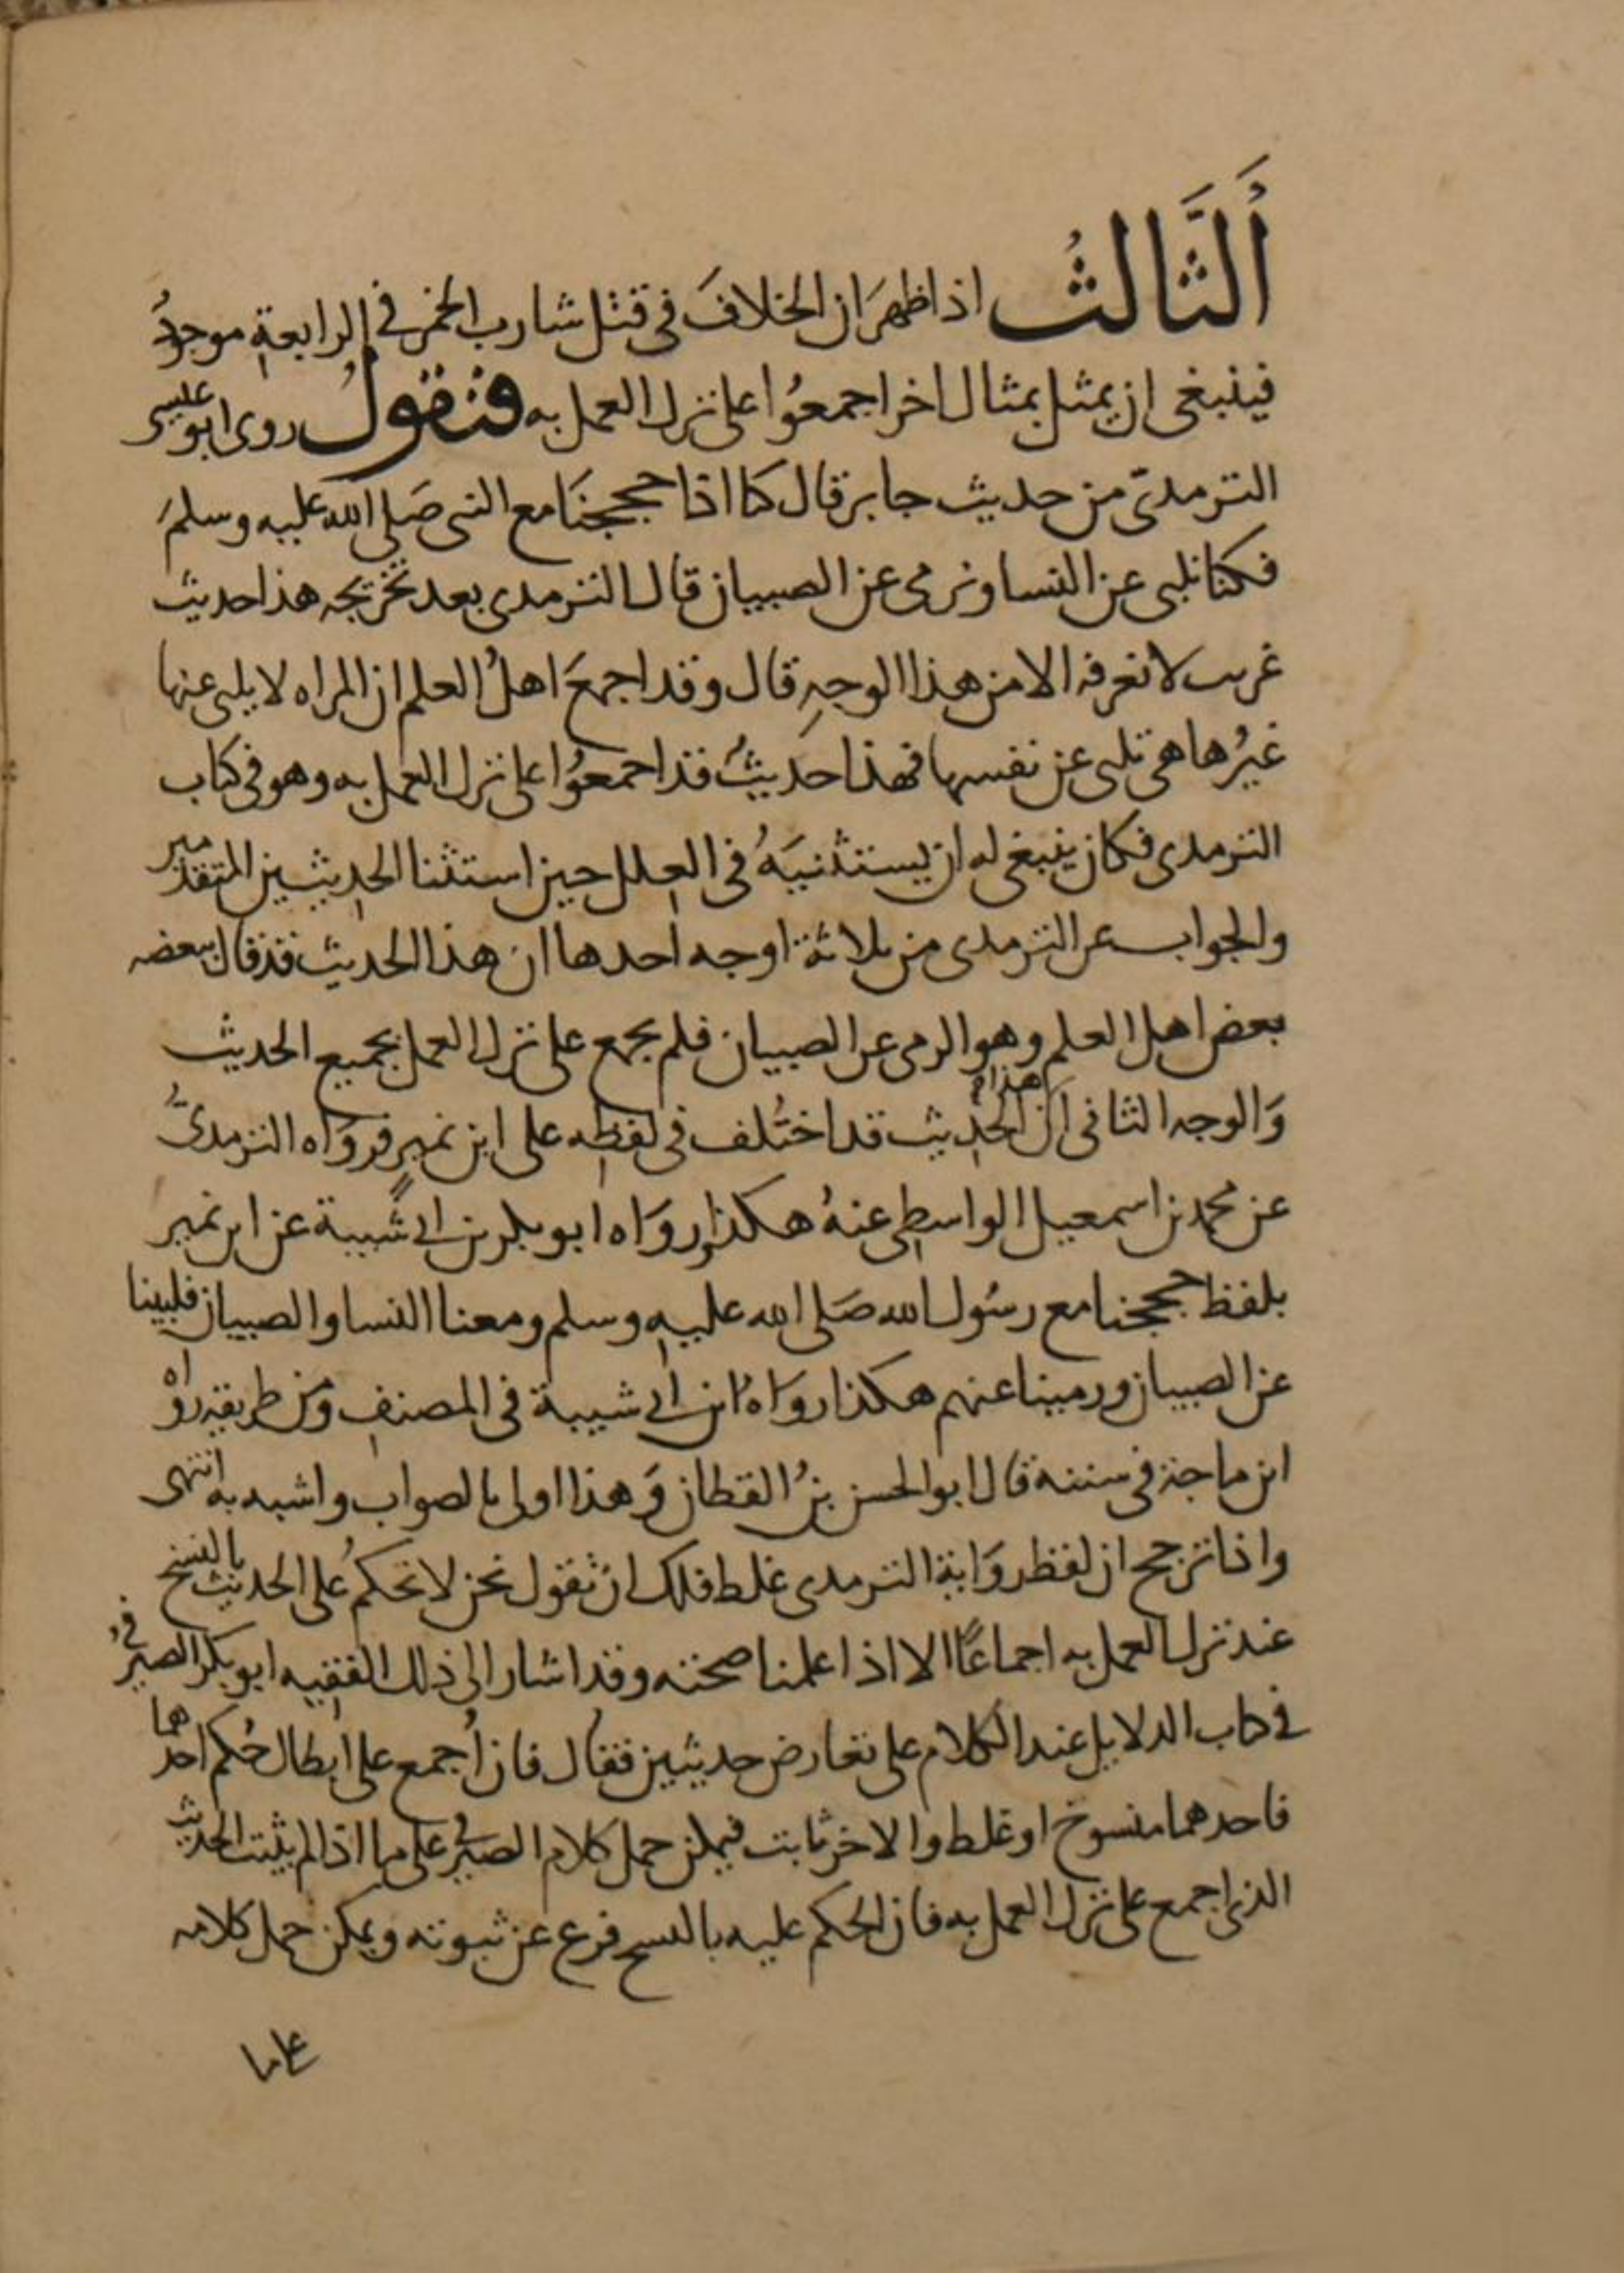 اَلثَّالثُ اذا ظهرَ ان الخلافَ فى قتل شارب الخمر فى الرابعة موجودُ
فينبغى ان يمثل بمثال اخر اجمعُوا على ترك العمل به فنقولُ روى ابو عيسى
الترمدىّ من حديث جابر قال كنا اذا حججنَا مع النبى صَلى الله عليه وسلمَ
فكنا نلبى عن النسا ونرمى عن الصبيان قال الترمدى بعد تخريجه هذا حديث
غريب لا نعرفه الا من هذا الوجهِ قال وقد اجمعَ اهلُ العلم ان المراه لا يلبى عنها
غيرُها هى تلبى عن نفسها فهذا حديثٌ قد اجمعوُا على ترك العمل به وهو فى كتاب
الترمدى فكان ينبغى له ان يستثنيَهُ فى العلل حين استثنا الحديثين المتقدمين
والجواب عن الترمدى من ثلاثة اوجه احدها ان هذا الحديث قد قال ببعضه
بعض اهل العلم وهو الرمى عن الصبيان فلم يجمع على ترك العمل بجميع الحديث
وَالوجه الثانى اَن هذا الحديث قد اختُلف فى لفظه على ابن نمير فروَاه الترمدىُّ
عن محمد بن اسمعيل الواسطى عنهُ هكذا وروَاه ابو بكر بن ابى شَيبة عن ابن نمير
بلفظ حججنا مع رسُول الله صَلى الله عليه وسلم ومعنا النسا والصبيان فلبينا
عن الصبيان ورمينا عنهم هكذا روَاهُ ابن ابى شيبة فى المصنف ومن طريقه رواه
ابن ماجة فى سننه قال ابو الحسن بنُ القطان وَهذا اولى بالصواب واشبه به انتهى
واذا ترجح ان لفظ روَاية الترمدى غلط فلك ان تقول نحن لا نحكمُ على الحديث بالنسخ
عند ترك العمل به اجماعًا الا اذا علمنا صحته وقد اشار الى ذلك الفقيه ابو بكر الصيرفى
فى كتاب الدلايل عند الكلام على تعارض حديثين فقال فان اُجمع على ابطال حُكم احدهما
فاحدهما منسوخ او غلط والاخر ثابت فيمكن حمل كلام الصيرفى على ما اذا لم يثبت الحديث
الذى اجمع على ترك العمل به فان الحكم عليه بالنسخ فرع عن ثبوته ويمكن حمل كلامه
على ما